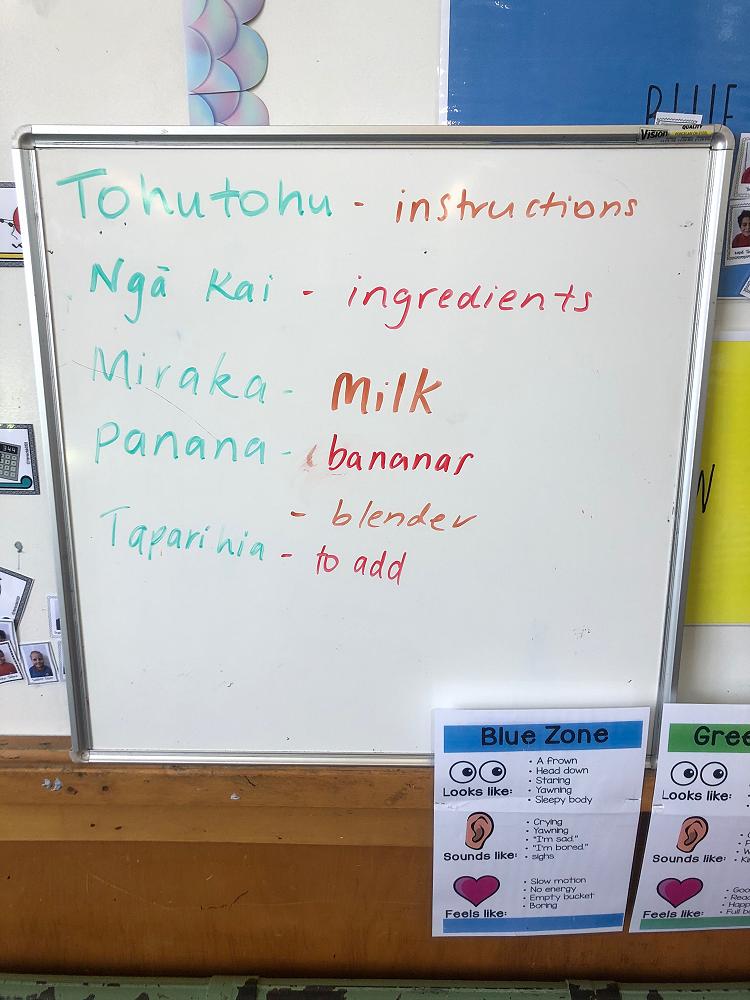 BLUE
Vision QUALITY
Tohutohu - instructions
Ngā Kai - ingredients
Miraka - Milk
Panana - bananas
- blender
Taparihia - to add
Blue Zone
Looks like:
• A frown
• Head down
• Staring
• Yawning
• Sleepy body
Sounds like:
• Crying
• Yawning
• "I'm sad."
• "I'm bored."
• sighs
Feels like:
• Slow motion
• No energy
• Empty bucket
• Boring
Gree
Looks like:
Sounds like:
Feels like: